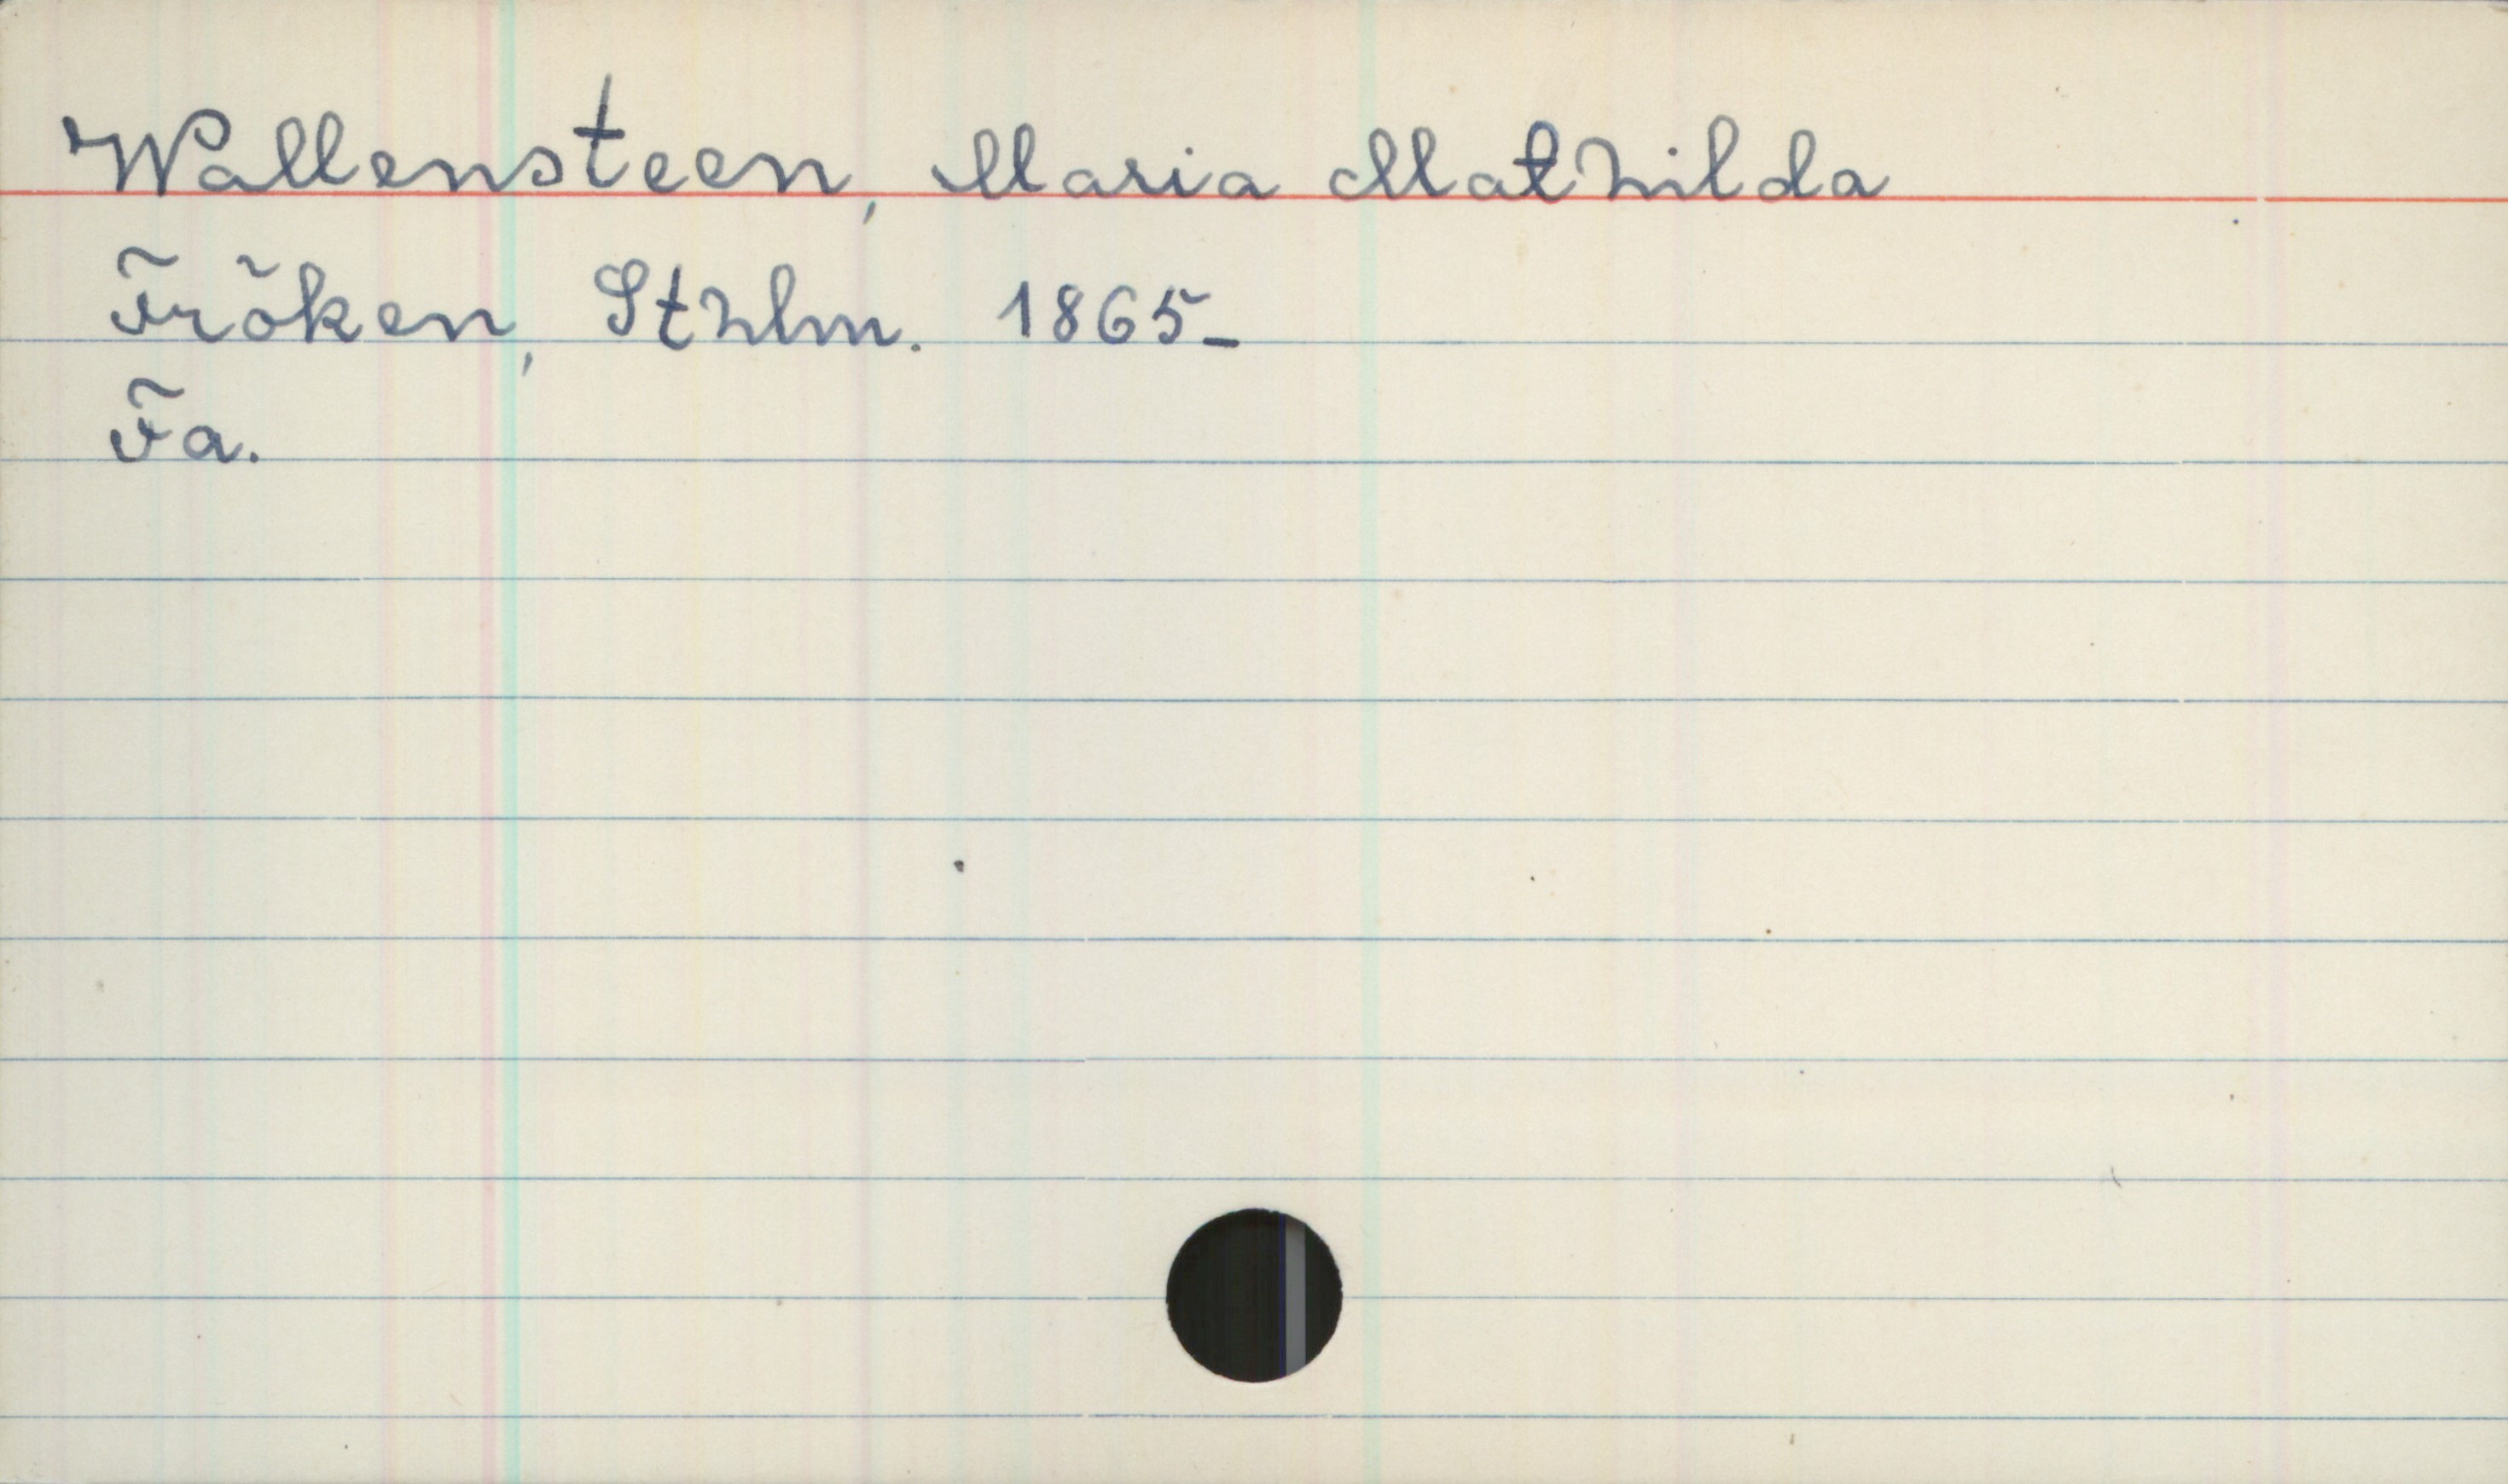 Wallensteen, Maria Mathilda
Fröken, Sthlm. 1865-
Fa.